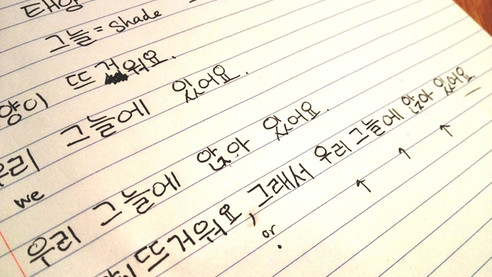 태양
그늘 = shade
양이 뜨거워요.
우리 그늘에 있어요.
we
우리 그늘에 앉아 있어요.
이 뜨거워요, 그래서 우리 그늘에 앉아 있어요
or .